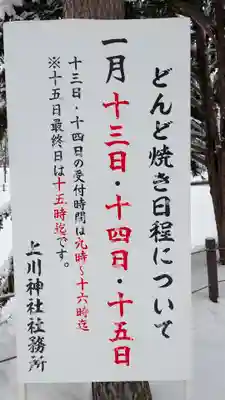 どんど焼き日程について
一月十三日・十四日・十五日
十三日・十四日の受付時間は九時〜十六時迄
※十五日最終日は十五時迄です。
上川神社社務所